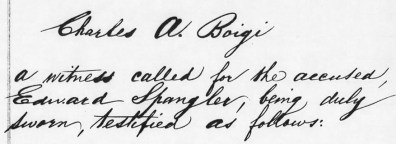 Charles A. Boigi
a witness called for the accused,
Edward Spangler, being duly
sworn, testified as follows: